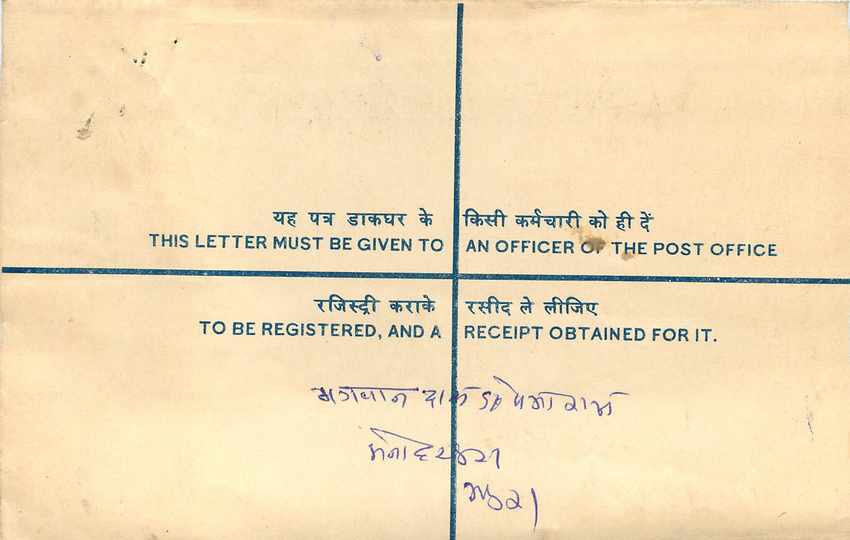 यह पत्र डाकघर के किसी कर्मचारी को ही दें
THIS LETTER MUST BE GIVEN TO AN OFFICER OF THE POST OFFICE
रजिस्ट्री कराके रसीद ले लीजिए
TO BE REGISTERED, AND A RECEIPT OBTAINED FOR IT.
भगवान दास